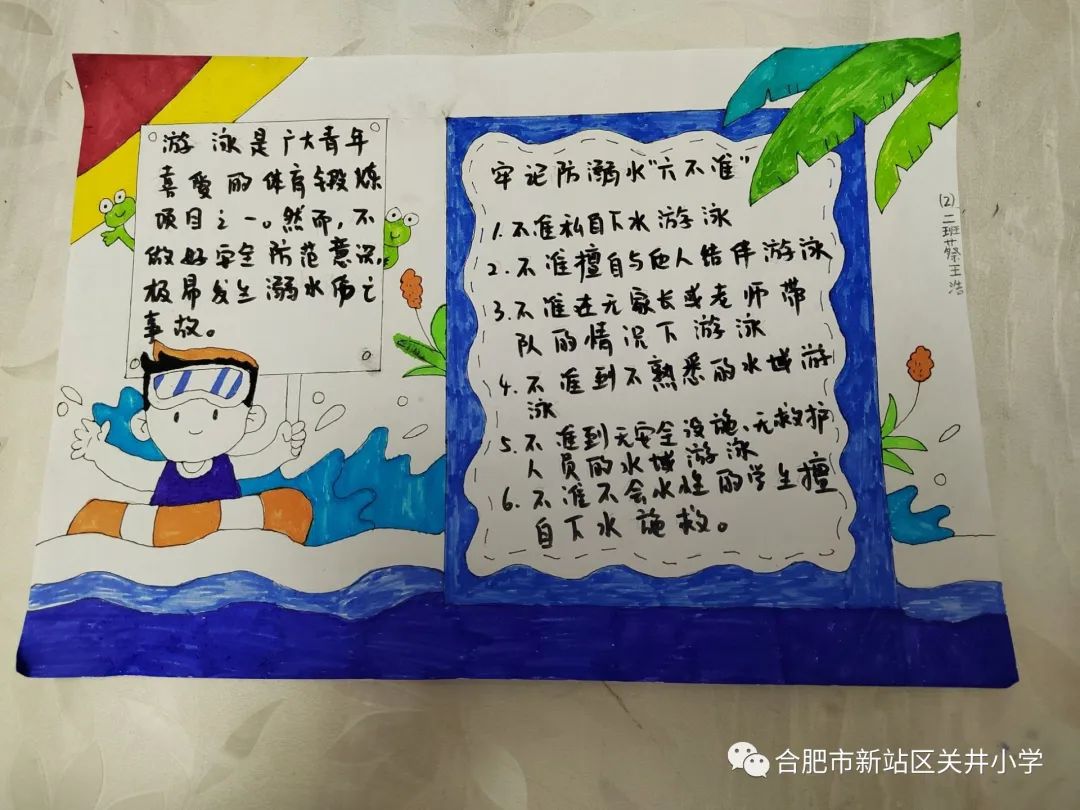 游泳是广大青年
喜爱的体育锻炼
项目之一。然而,不
做好安全防范意识,
极易发生溺水伤亡
事故。
牢记防溺水“六不准”
1.不准私自下水游泳
2.不准擅自与他人结伴游泳
3.不准在无家长或老师带
队的情况下游泳
4.不准到不熟悉的水域游
泳
5.不准到无安全设施、无救护
人员的水域游泳
6.不准不会水性的学生擅
自下水施救。
(2)二班蔡王浩
合肥市新站区关井小学